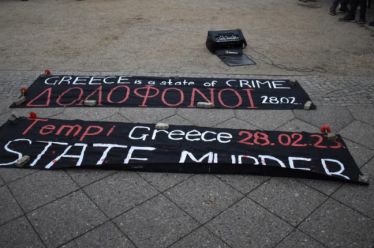 GREECE is a state of CRIME
ΔΟΛΟΦΟΝΟΙ 28.02.
Tempi Greece 28.02.23.
STATE MURDER